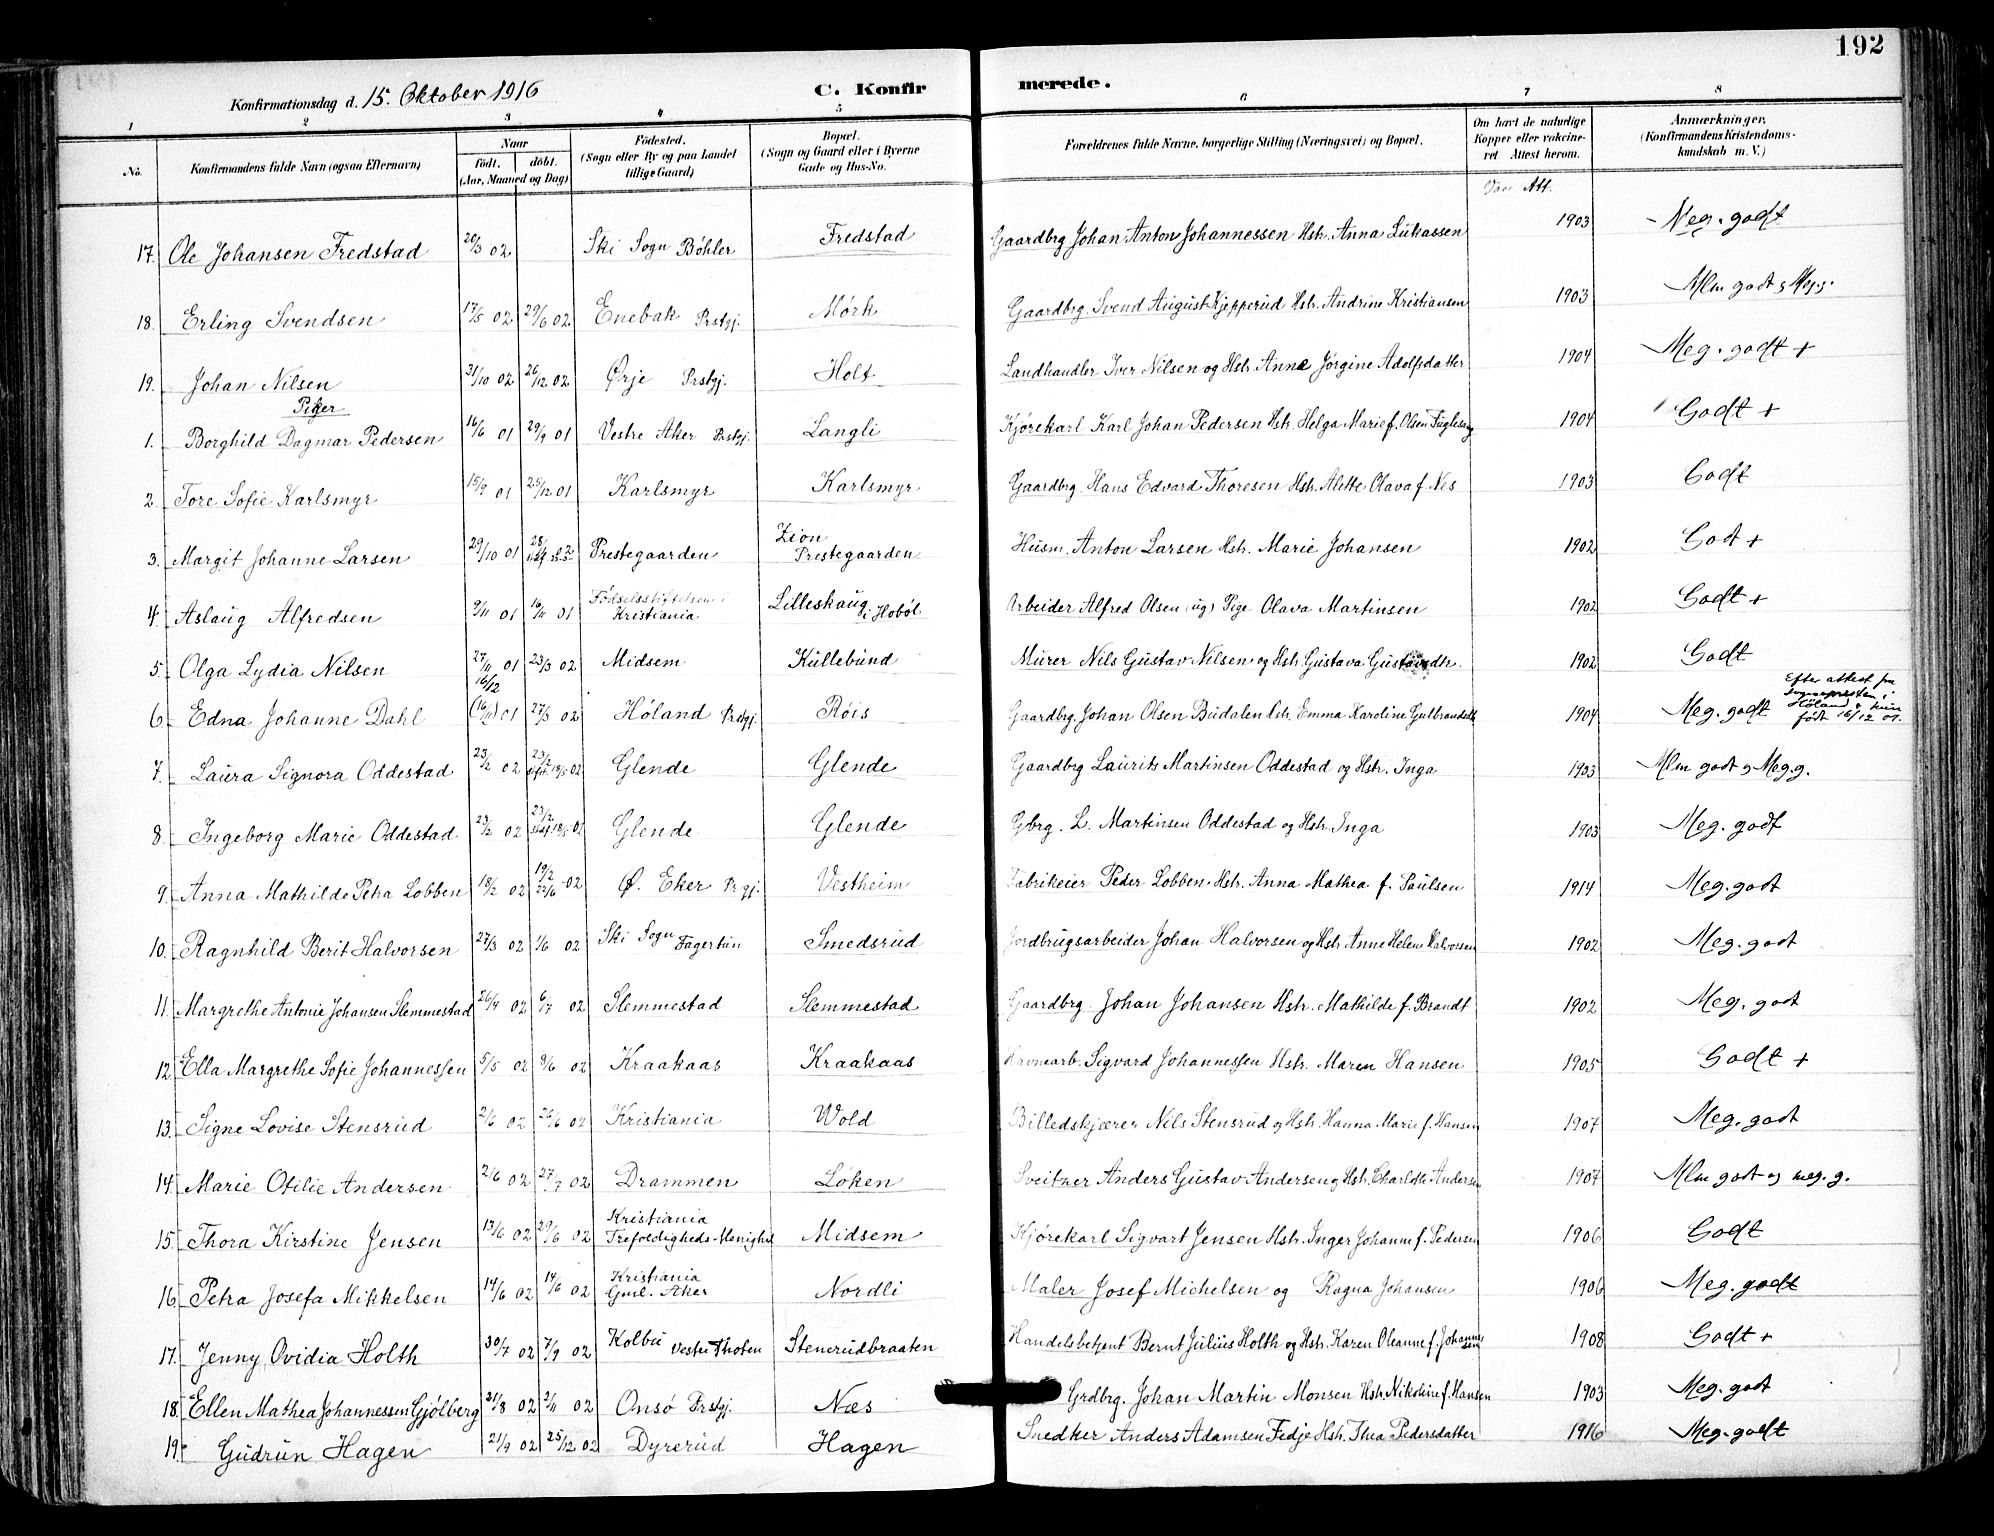 192
Konfirmationsdag d. 15. Oktober 1916
C. Konfirmerede.
1 2 3 4 5 6 7 8
No. Konfirmandens fulde Navn (ogsaa Efternavn) Naar født. døbt. (Aar, Maaned og Dag) Fødested. (Sogn eller By og paa Landet tillige Gaard) Bopæl. (Sogn og Gaard eller i Byerne Gade og Hus-No. Forældrenes fulde Navne, borgerlige Stilling (Næringsvei) og Bopæl. Om havt de naturlige Kopper eller vakcineret Attest herom. Anmærkninger. (Konfirmandens Kristendomskundskab m. V.)
Vacc. Att.
17. Ole Johansen Fredstad 20/3 02 Ski Sogn Bøhler Fredstad Gaardbrg Johan Anton Johannessen Hstr. Anna Lukassen 1903 Meg. godt
18. Erling Svendsen 17/5 02 29/6 02 Enebak Prstgj. Mørk Gaardbrg. Svend August Kjepperud Hstr. Andrine Kristiansen 1903 Mlm godt og Meg g.
19. Johan Nilsen 31/10 02 26/12 02 Ørje Prstgj. Holt Landhandler Iver Nilsen og Hstr. Anne Jørgine Adolfsdatter 1904 Meg. godt +
Piger
1. Borghild Dagmar Pedersen 16/6 01 29/9 01 Vestre Aker Prstgj. Langli Kjørekarl Karl Johan Pedersen Hstr. Helga Marie f. Olsen Fuglesang 1904 Godt +
2. Tore Sofie Karlsmyr 15/9 01 25/12 01 Karlsmyr Karlsmyr Gaardbrg. Hans Edvard Thoresen Hstr. Alette Olava f. Nes 1903 Godt
3. Margit Johanne Larsen 29/10 01 28/ Prestegaarden Zion Prestegaarden Husm. Anton Larsen Hstr. Marie Johansen 1902 Godt +
4. Aslaug Alfredsen 9/11 01 16/11 01 Fødselsstiftelsen i Kristiania Lilleskaug i Hobøl Arbeider Alfred Olsen (ug) Pige Olava Martinsen 1902 Godt +
5. Olga Lydia Nilsen 27/11 01 23/3 02 Midsem Kullebund Murer Nils Gustav Nilsen og Hstr. Gustava Gustavsdtr. 1902 Godt
6. Edna Johanne Dahl 16/12 (16/11) 01 27/3 02 Høland Prstgj. Røis Gaardbrg. Johan Olsen Budalen Hstr. Emma Karoline Gulbrandsdtr 1904 Meg. godt Efter attest fra Sognepresten i Høland er hun født 16/12 01.
7. Laura Signora Oddestad 23/2 02 23/2 stadf. 18/5 02 Glende Glende Gaardbrg Laurits Martinsen Oddestad og Hstr. Inga 1903 Mlm godt og Meg. g.
8. Ingeborg Marie Oddestad 23/2 02 23/2 stadf. 18/5 02 Glende Glende Gbrg. L. Martinsen Oddestad og Hstr. Inga 1903 Meg. godt
9. Anna Mathilde Petra Lobben 18/2 02 19/2 22/6 02 Ø. Eker Prgj. Vestheim Fabrikeier Peder Lobben Hstr. Anna Mathea f. Paulsen 1914 Meg. godt
10. Ragnhild Berit Halvorsen 27/3 02 1/6 02 Ski Sogn Fagertun Smedsrud Jordbrugsarbeider Johan Halvorsen og Hstr. Anne Helene Halvorsen 1902 Meg. godt
11. Margrethe Antonie Johansen Slemmestad 26/4 02 6/7 02 Slemmestad Slemmestad Gaardbrg. Johan Johansen Hstr. Mathilde f. Brandt 1902 Meg. godt
12. Ella Margrethe Sofie Johannessen 5/5 02 8/6 02 Kraakaas Kraakaas Havnearb. Sigvard Johannessen Hstr. Maren Hansen 1905 Godt +
13. Signe Lovise Stensrud 2/6 02 26/6 02 Kristiania Wold Billedskjærer Nils Stensrud og Hstr. Hanna Marie f. Hansen 1907 Meg. godt
14. Marie Otilie Andersen 2/6 02 27/7 02 Drammen Løken Sveitser Anders Gustav Andersen og Hstr. Charlotte Andersen 1907 Mlm godt og meg. g.
15. Thora Kirstine Jensen 13/6 02 29/6 02 Kristiania Trefoldigheds-Menighet Midsem Kjørekarl Sigvart Jensen Hstr. Inger Johanne f. Pedersen 1906 Godt
16. Petra Josefa Mikkelsen 14/6 02 14/6 02 Kristiania Gml. Aker Nordli Maler Josef Michelsen og Ragna Johansen 1906 Meg. godt
17. Jenny Ovidia Holth 30/7 02 7/9 02 Kolbu Vestre Thoten Stenerudbraaten Handelsbetjent Bernt Julius Holth og Hstr. Karen Oleanne f. Johannessen 1908 Godt +
18. Ellen Mathea Johannessen Gjølberg 31/8 02 2/11 02 Onsø Prstgj. Næs Grdbrg. Johan Martin Monsen Hstr. Nikoline f. Hansen 1903 Meg. godt
19. Gudrun Hagen 21/9 02 25/12 02 Dyrerud Hagen Snedker Anders Adamsen Fedje Hstr. Thea Pedersdatter 1916 Meg. godt